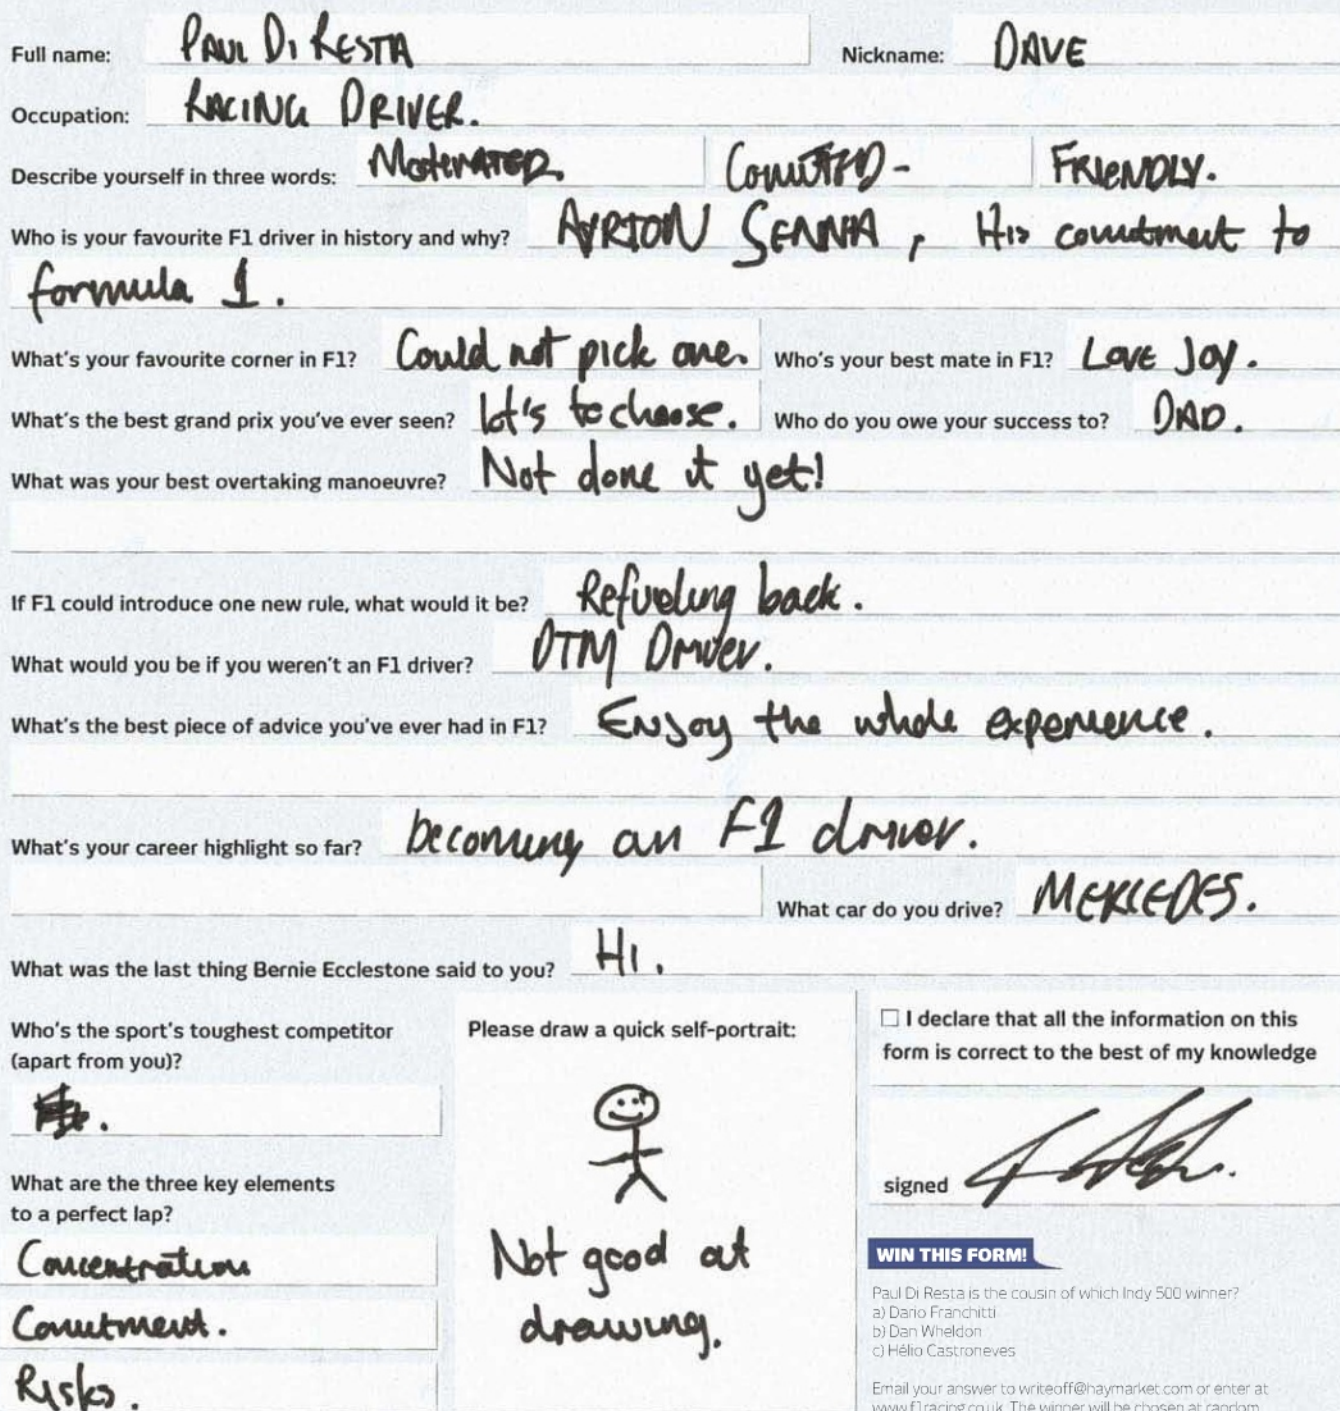 Full name: PAUL DI RESTA Nickname: DAVE
Occupation: RACING DRIVER.
Describe yourself in three words: MOTIVATED. COMITTED - FRIENDLY.
Who is your favourite F1 driver in history and why? AYRTON SENNA, His comitment to
formula 1.
What's your favourite corner in F1? Could not pick one. Who's your best mate in F1? LOVE JOY.
What's the best grand prix you've ever seen? lot's to choose. Who do you owe your success to? DAD.
What was your best overtaking manoeuvre? Not done it yet!
If F1 could introduce one new rule, what would it be? Refueling back.
What would you be if you weren't an F1 driver? DTM Driver.
What's the best piece of advice you've ever had in F1? Enjoy the whole experience.
What's your career highlight so far? becoming an F1 driver.
What car do you drive? MERCEDES.
What was the last thing Bernie Ecclestone said to you? HI.
Who's the sport's toughest competitor
(apart from you)?
What are the three key elements
to a perfect lap?
Concentration
Comitment.
Risks.
Please draw a quick self-portrait:
Not good at
drawing.
I declare that all the information on this
form is correct to the best of my knowledge
signed
WIN THIS FORM!
Paul Di Resta is the cousin of which Indy 500 winner?
a) Dario Franchitti
b) Dan Wheldon
c) Hélio Castroneves
Email your answer to writeoff@haymarket.com or enter at
www.f1racing.co.uk. The winner will be chosen at random